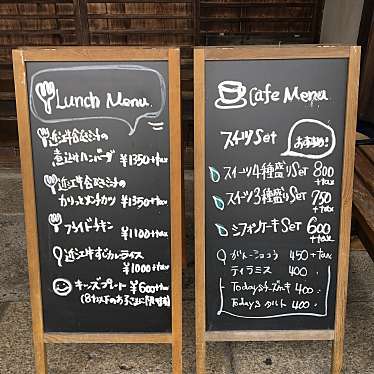 Lunch Menu.
近江牛合びきミンチの
煮込みハンバーグ ¥1350+tax
近江牛合びきミンチの
かりっとメンチカツ ¥1350+tax
フライドチキン
¥1100+tax
近江牛すじカレーライス
¥1000+tax
キッズプレート ¥600+tax
Cafe Menu.
スイーツSet
おすすめ!
スイーツ4種盛りSet 800
+tax
スイーツ3種盛りSet 750
+tax
シフォンケーキSET 600
+tax
ガトーショコラ 450+tax
ティラミス 400.
Todayチーズケーキ 400
Today's タルト 400.